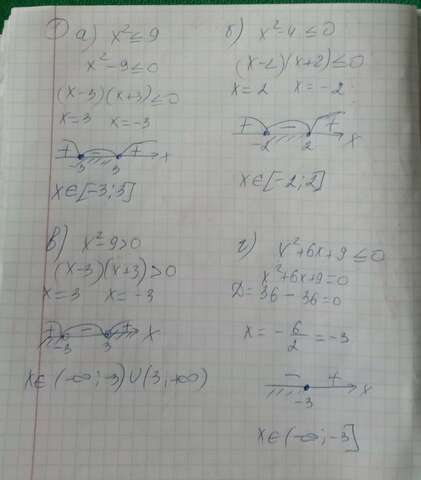 ① а) x² ≤ 9
x² - 9 ≤ 0
(x-3)(x+3) ≤ 0
x = 3 x = -3
+ - + -3 3 x
x ∈ [-3; 3]
б) x² - 4 ≤ 0
(x-2)(x+2) ≤ 0
x = 2 x = -2
+ - + -2 2 x
x ∈ [-2; 2]
в) x² - 9 > 0
(x-3)(x+3) > 0
x = 3 x = -3
+ - + -3 3 x
x ∈ (-∞; -3) ∪ (3; +∞)
г) x² + 6x + 9 ≤ 0
x² + 6x + 9 = 0
D = 36 - 36 = 0
x = -6/2 = -3
- + -3 x
x ∈ (-∞; -3]